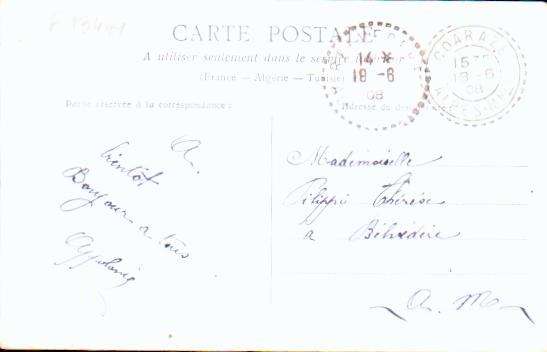 F 1344
CARTE POSTALE
A utiliser seulement dans le service intérieur
(France - Algérie - Tunisie)
14 *
18 - 6
08
COARAZE
15 35
18 - 6
08
ALPES-MMES
Partie réservée à la correspondance :
Adresse du
A.
bientôt
Bonjour a tous
Appolonie
Mademoiselle
Pilippi Thérèse
a Bélvédère
A. M